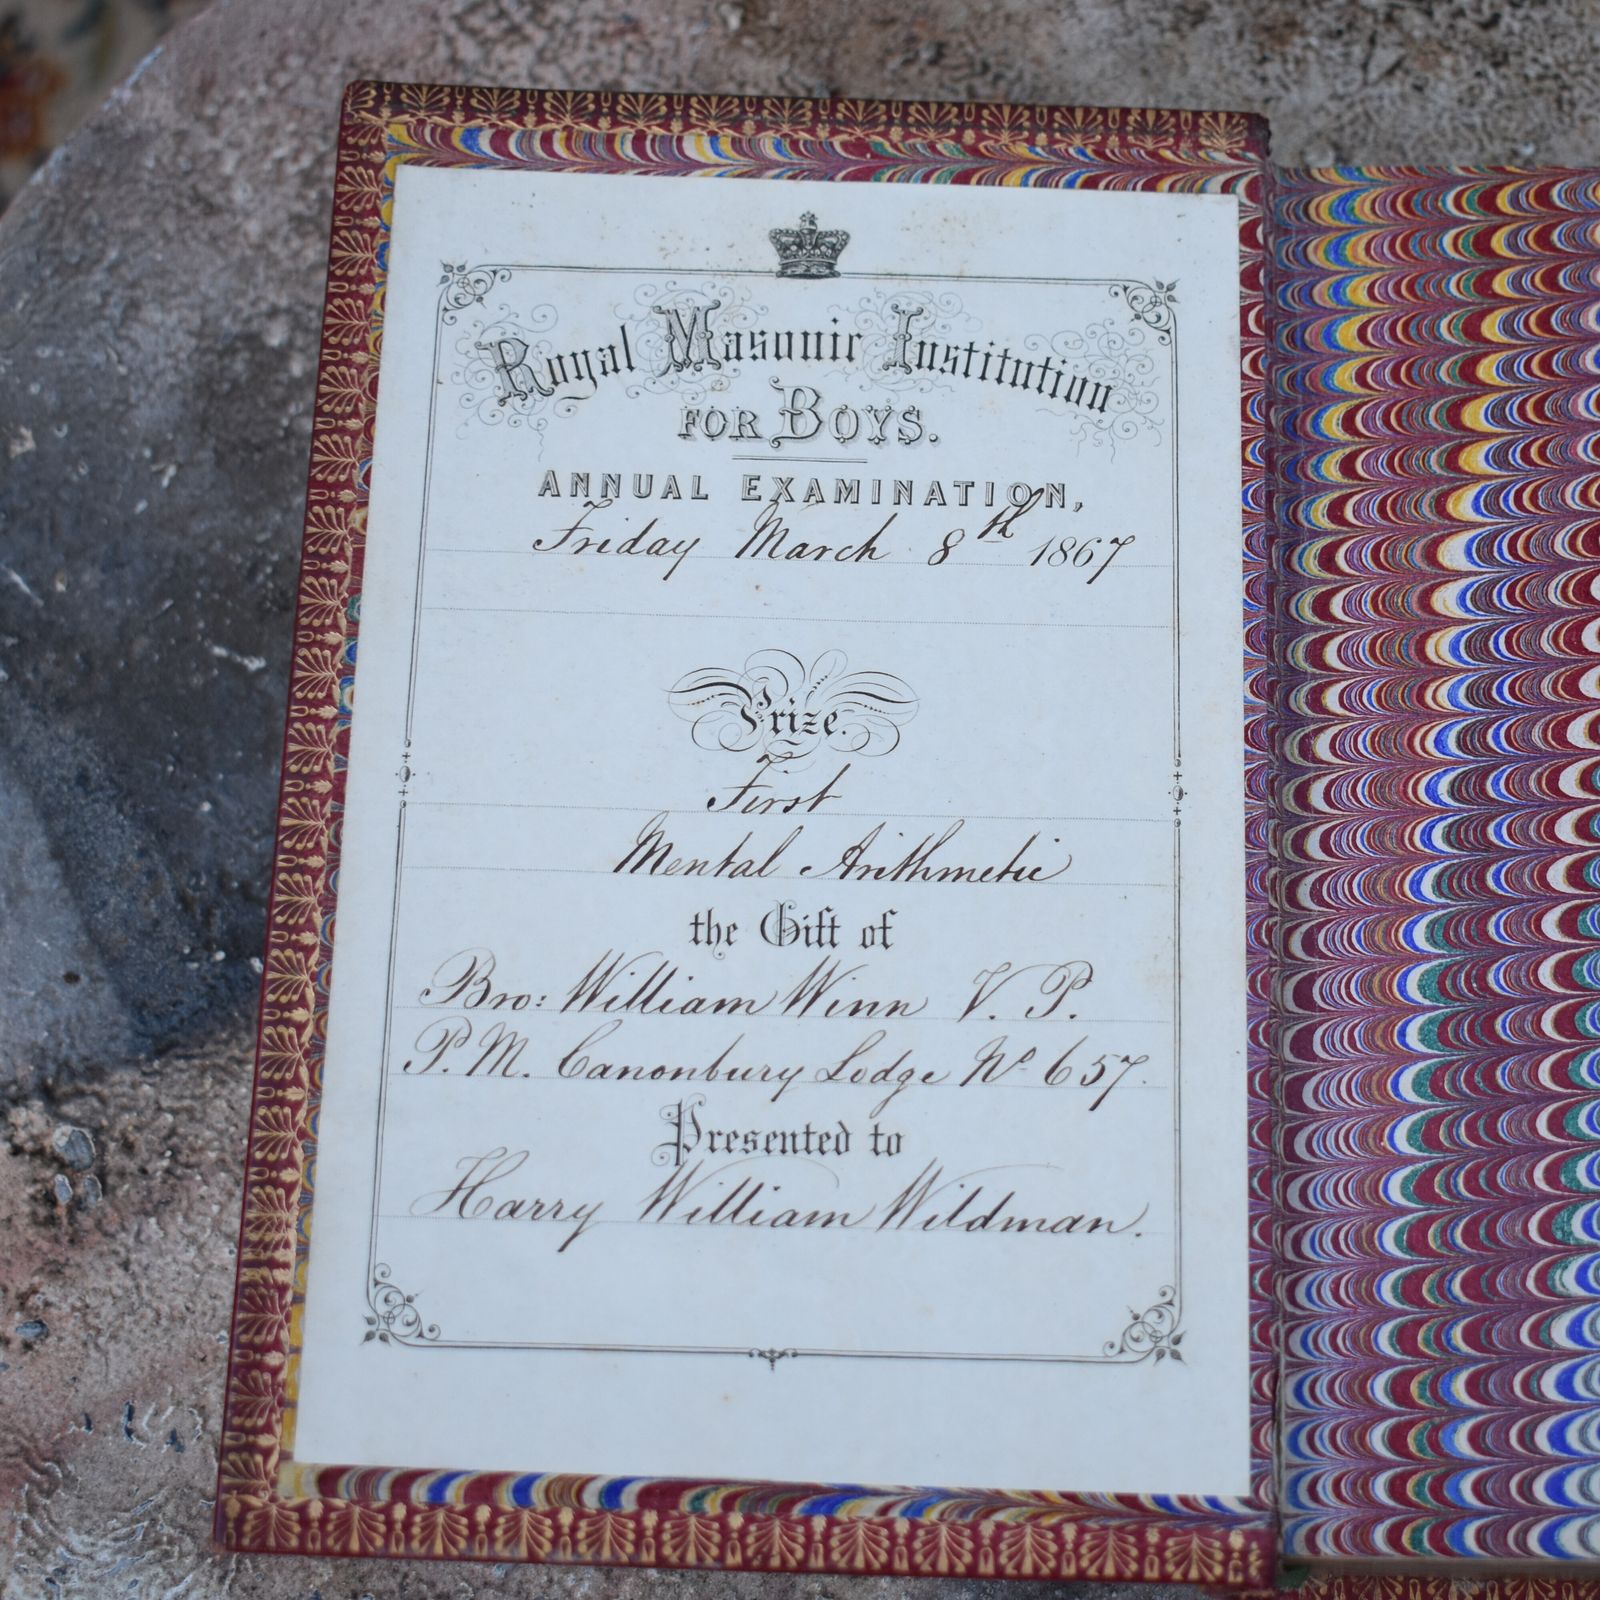 Royal Masonic Institution
FOR BOYS.
ANNUAL EXAMINATION,
Friday March 8th 1867
Prize.
First
Mental Arithmetic
the Gift of
Bro: William Winn V. P.
P. M. Canonbury Lodge No 657.
Presented to
Harry William Wildman.